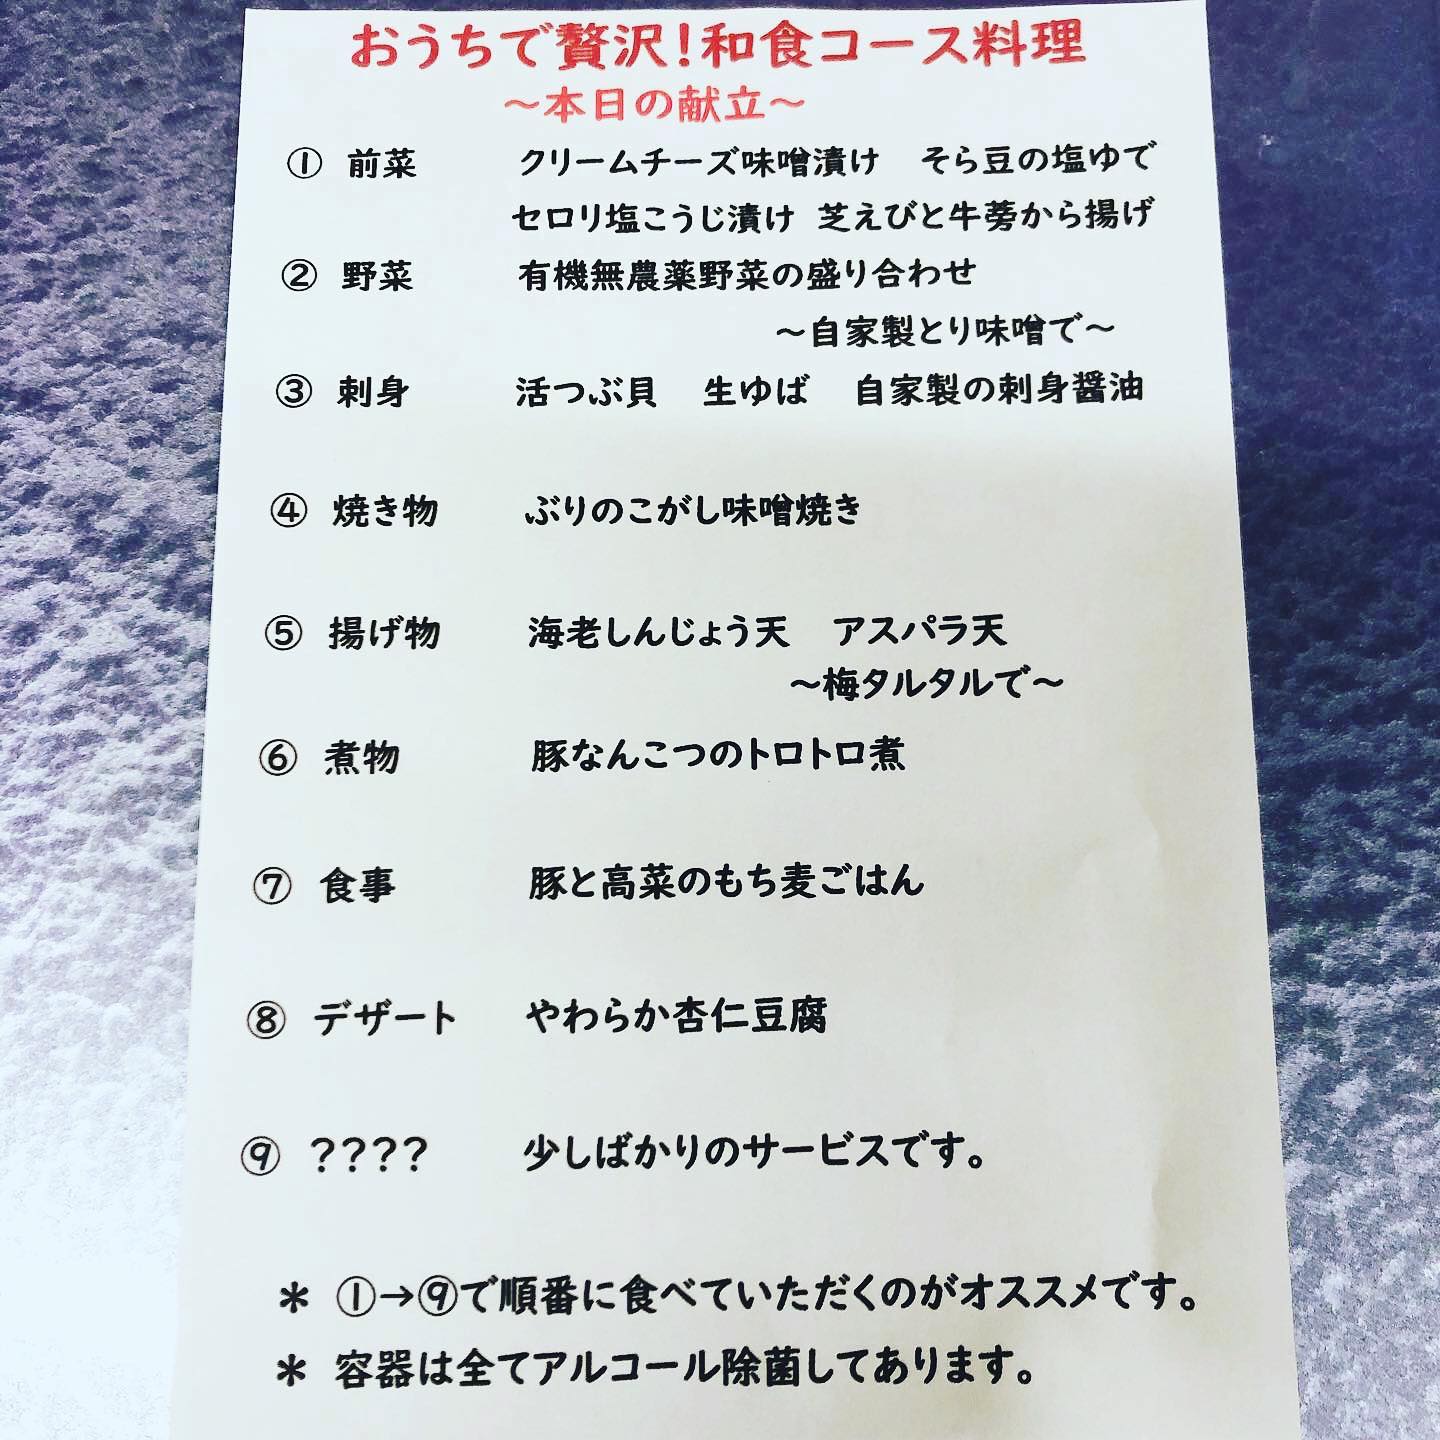 おうちで贅沢!和食コース料理
～本日の献立～
① 前菜 クリームチーズ味噌漬け そら豆の塩ゆで
セロリ塩こうじ漬け 芝えびと牛蒡から揚げ
② 野菜 有機無農薬野菜の盛り合わせ
～自家製とり味噌で～
③ 刺身 活つぶ貝 生ゆば 自家製の刺身醤油
④ 焼き物 ぶりのこがし味噌焼き
⑤ 揚げ物 海老しんじょう天 アスパラ天
～梅タルタルで～
⑥ 煮物 豚なんこつのトロトロ煮
⑦ 食事 豚と高菜のもち麦ごはん
⑧ デザート やわらか杏仁豆腐
⑨ ???? 少しばかりのサービスです。
＊ ①→⑨で順番に食べていただくのがオススメです。
＊ 容器は全てアルコール除菌してあります。